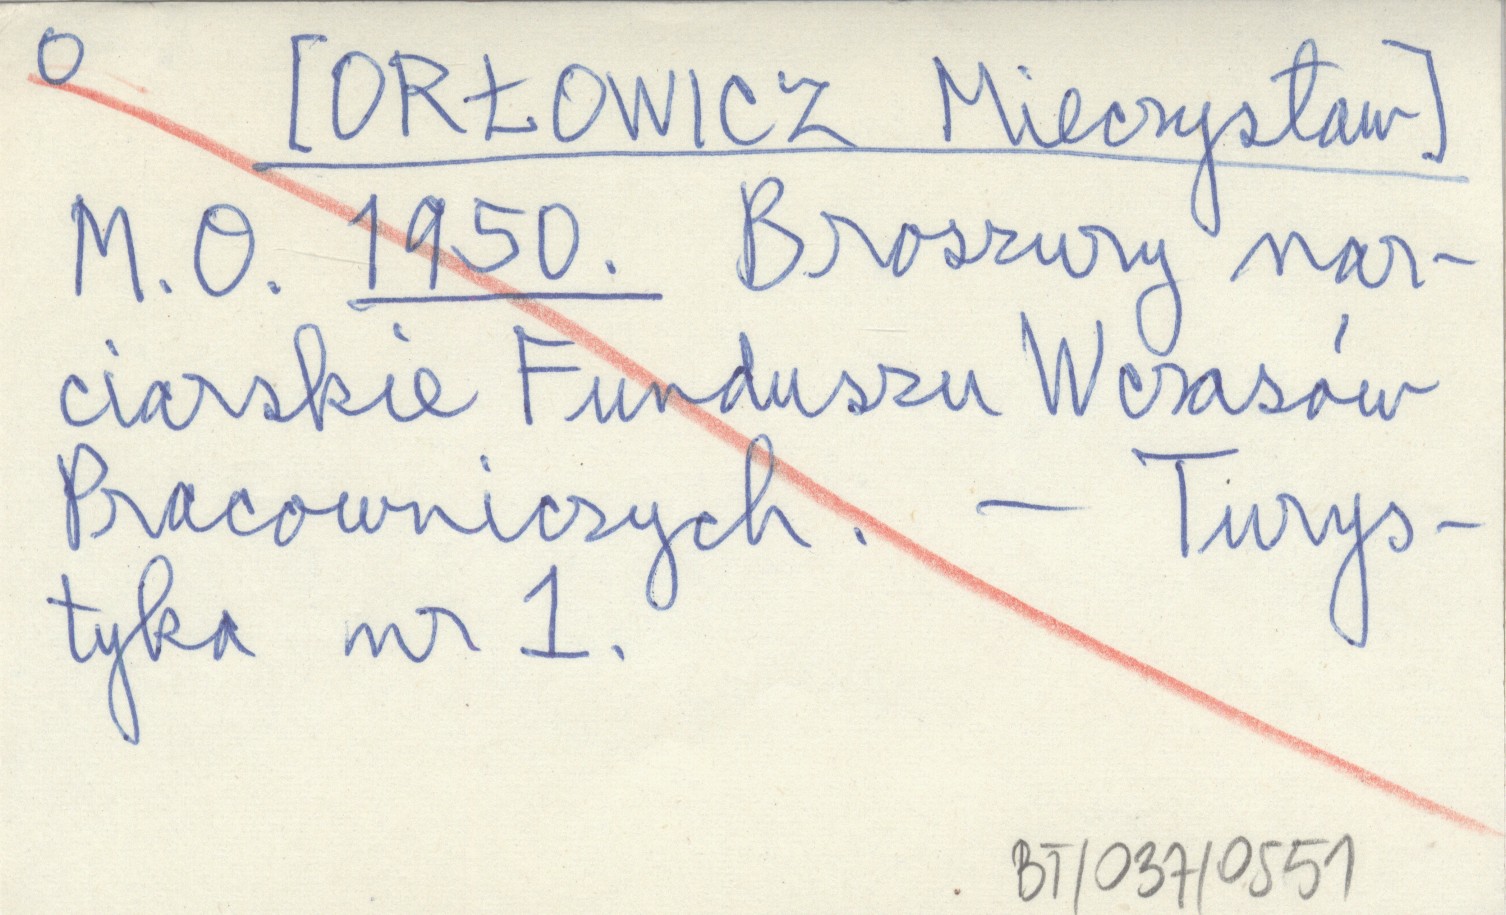 O
[ORŁOWICZ Mieczysław]
M.O. 1950. Broszury nar-
ciarskie Funduszu Wczasów
Pracowniczych. — Turys-
tyka nr 1.
BT/037/0551